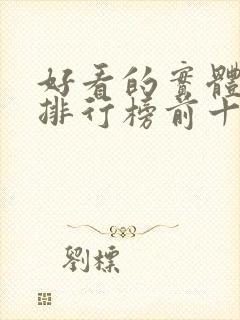 好看的實體
排行榜前十
劉標